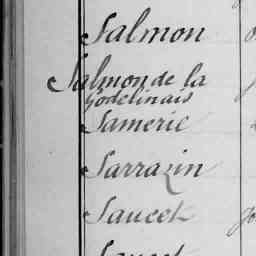 Salmon
Salmon de la
Godelinais
Sameric
Sarrazin
Saucet